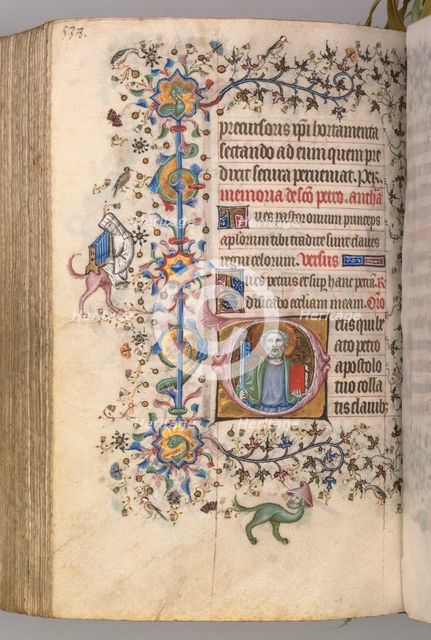 533.
precursoris xpi hortamenta
sectando ad eum quem pre
dixit secura perveniat. Per
memoria de sco petro. antha
Tu es pastor ovium princeps
aplorum tibi tradite sunt claves
regni celorum. Versus
Tu es petrus et sup hanc petra. R
Edificabo eccliam meam. Oro
Deus qui be
ato petro
apostolo
tuo colla
tis clavib
Heritage
Heritage
Heritage
Heritage
Heritage